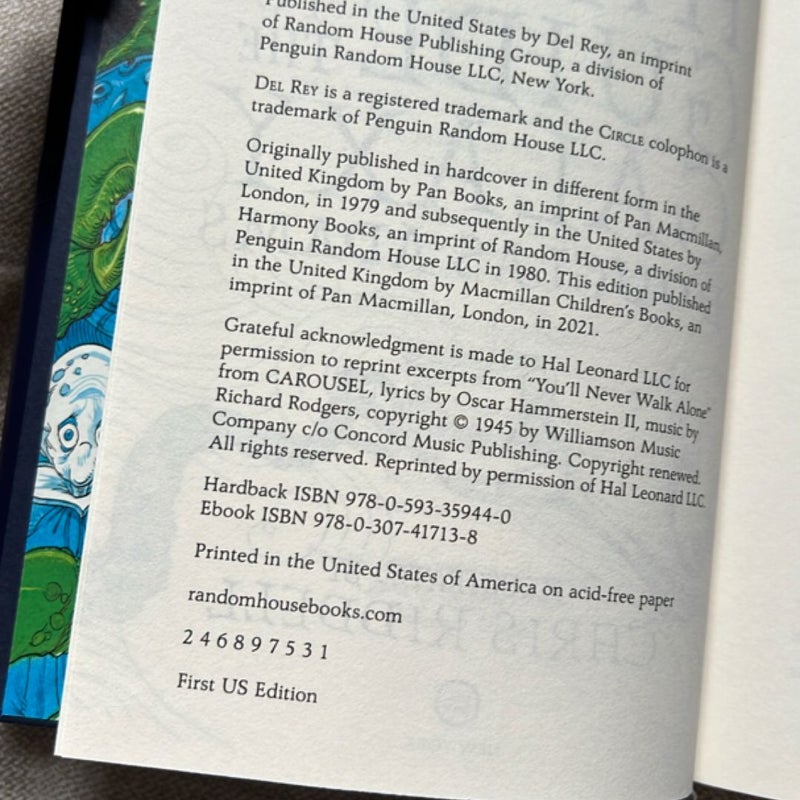 Published in the United States by Del Rey, an imprint
of Random House Publishing Group, a division of
Penguin Random House LLC, New York.
DEL REY is a registered trademark and the CIRCLE colophon is a
trademark of Penguin Random House LLC.
Originally published in hardcover in different form in the
United Kingdom by Pan Books, an imprint of Pan Macmillan,
London, in 1979 and subsequently in the United States by
Harmony Books, an imprint of Random House, a division of
Penguin Random House LLC in 1980. This edition published
in the United Kingdom by Macmillan Children's Books, an
imprint of Pan Macmillan, London, in 2021.
Grateful acknowledgment is made to Hal Leonard LLC for
permission to reprint excerpts from "You'll Never Walk Alone"
from CAROUSEL, lyrics by Oscar Hammerstein II, music by
Richard Rodgers, copyright © 1945 by Williamson Music
Company c/o Concord Music Publishing. Copyright renewed.
All rights reserved. Reprinted by permission of Hal Leonard LLC.
Hardback ISBN 978-0-593-35944-0
Ebook ISBN 978-0-307-41713-8
Printed in the United States of America on acid-free paper
randomhousebooks.com
2 4 6 8 9 7 5 3 1
First US Edition